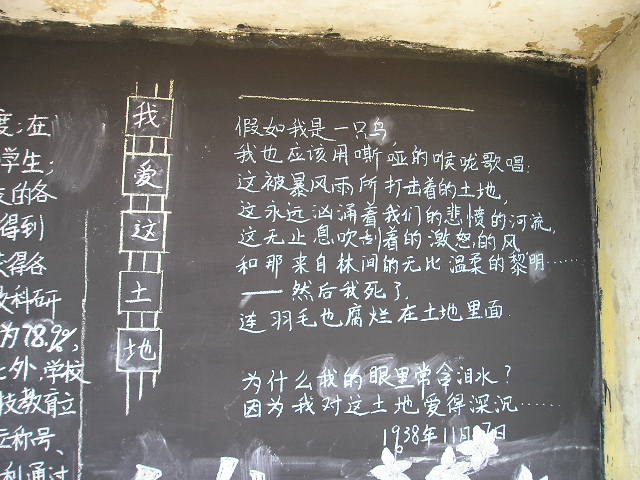 度；在
学生；
的各
得到
获得各
教科研
为78.9%,
外,学校
技教育立
称号、
利通过
我爱这土地
假如我是一只鸟,
我也应该用嘶哑的喉咙歌唱:
这被暴风雨所打击着的土地,
这永远汹涌着我们的悲愤的河流,
这无止息吹刮着的激怒的风
和那来自林间的无比温柔的黎明……
——然后我死了,
连羽毛也腐烂在土地里面
为什么我的眼里常含泪水?
因为我对这土地爱得深沉……
1938年11月17日